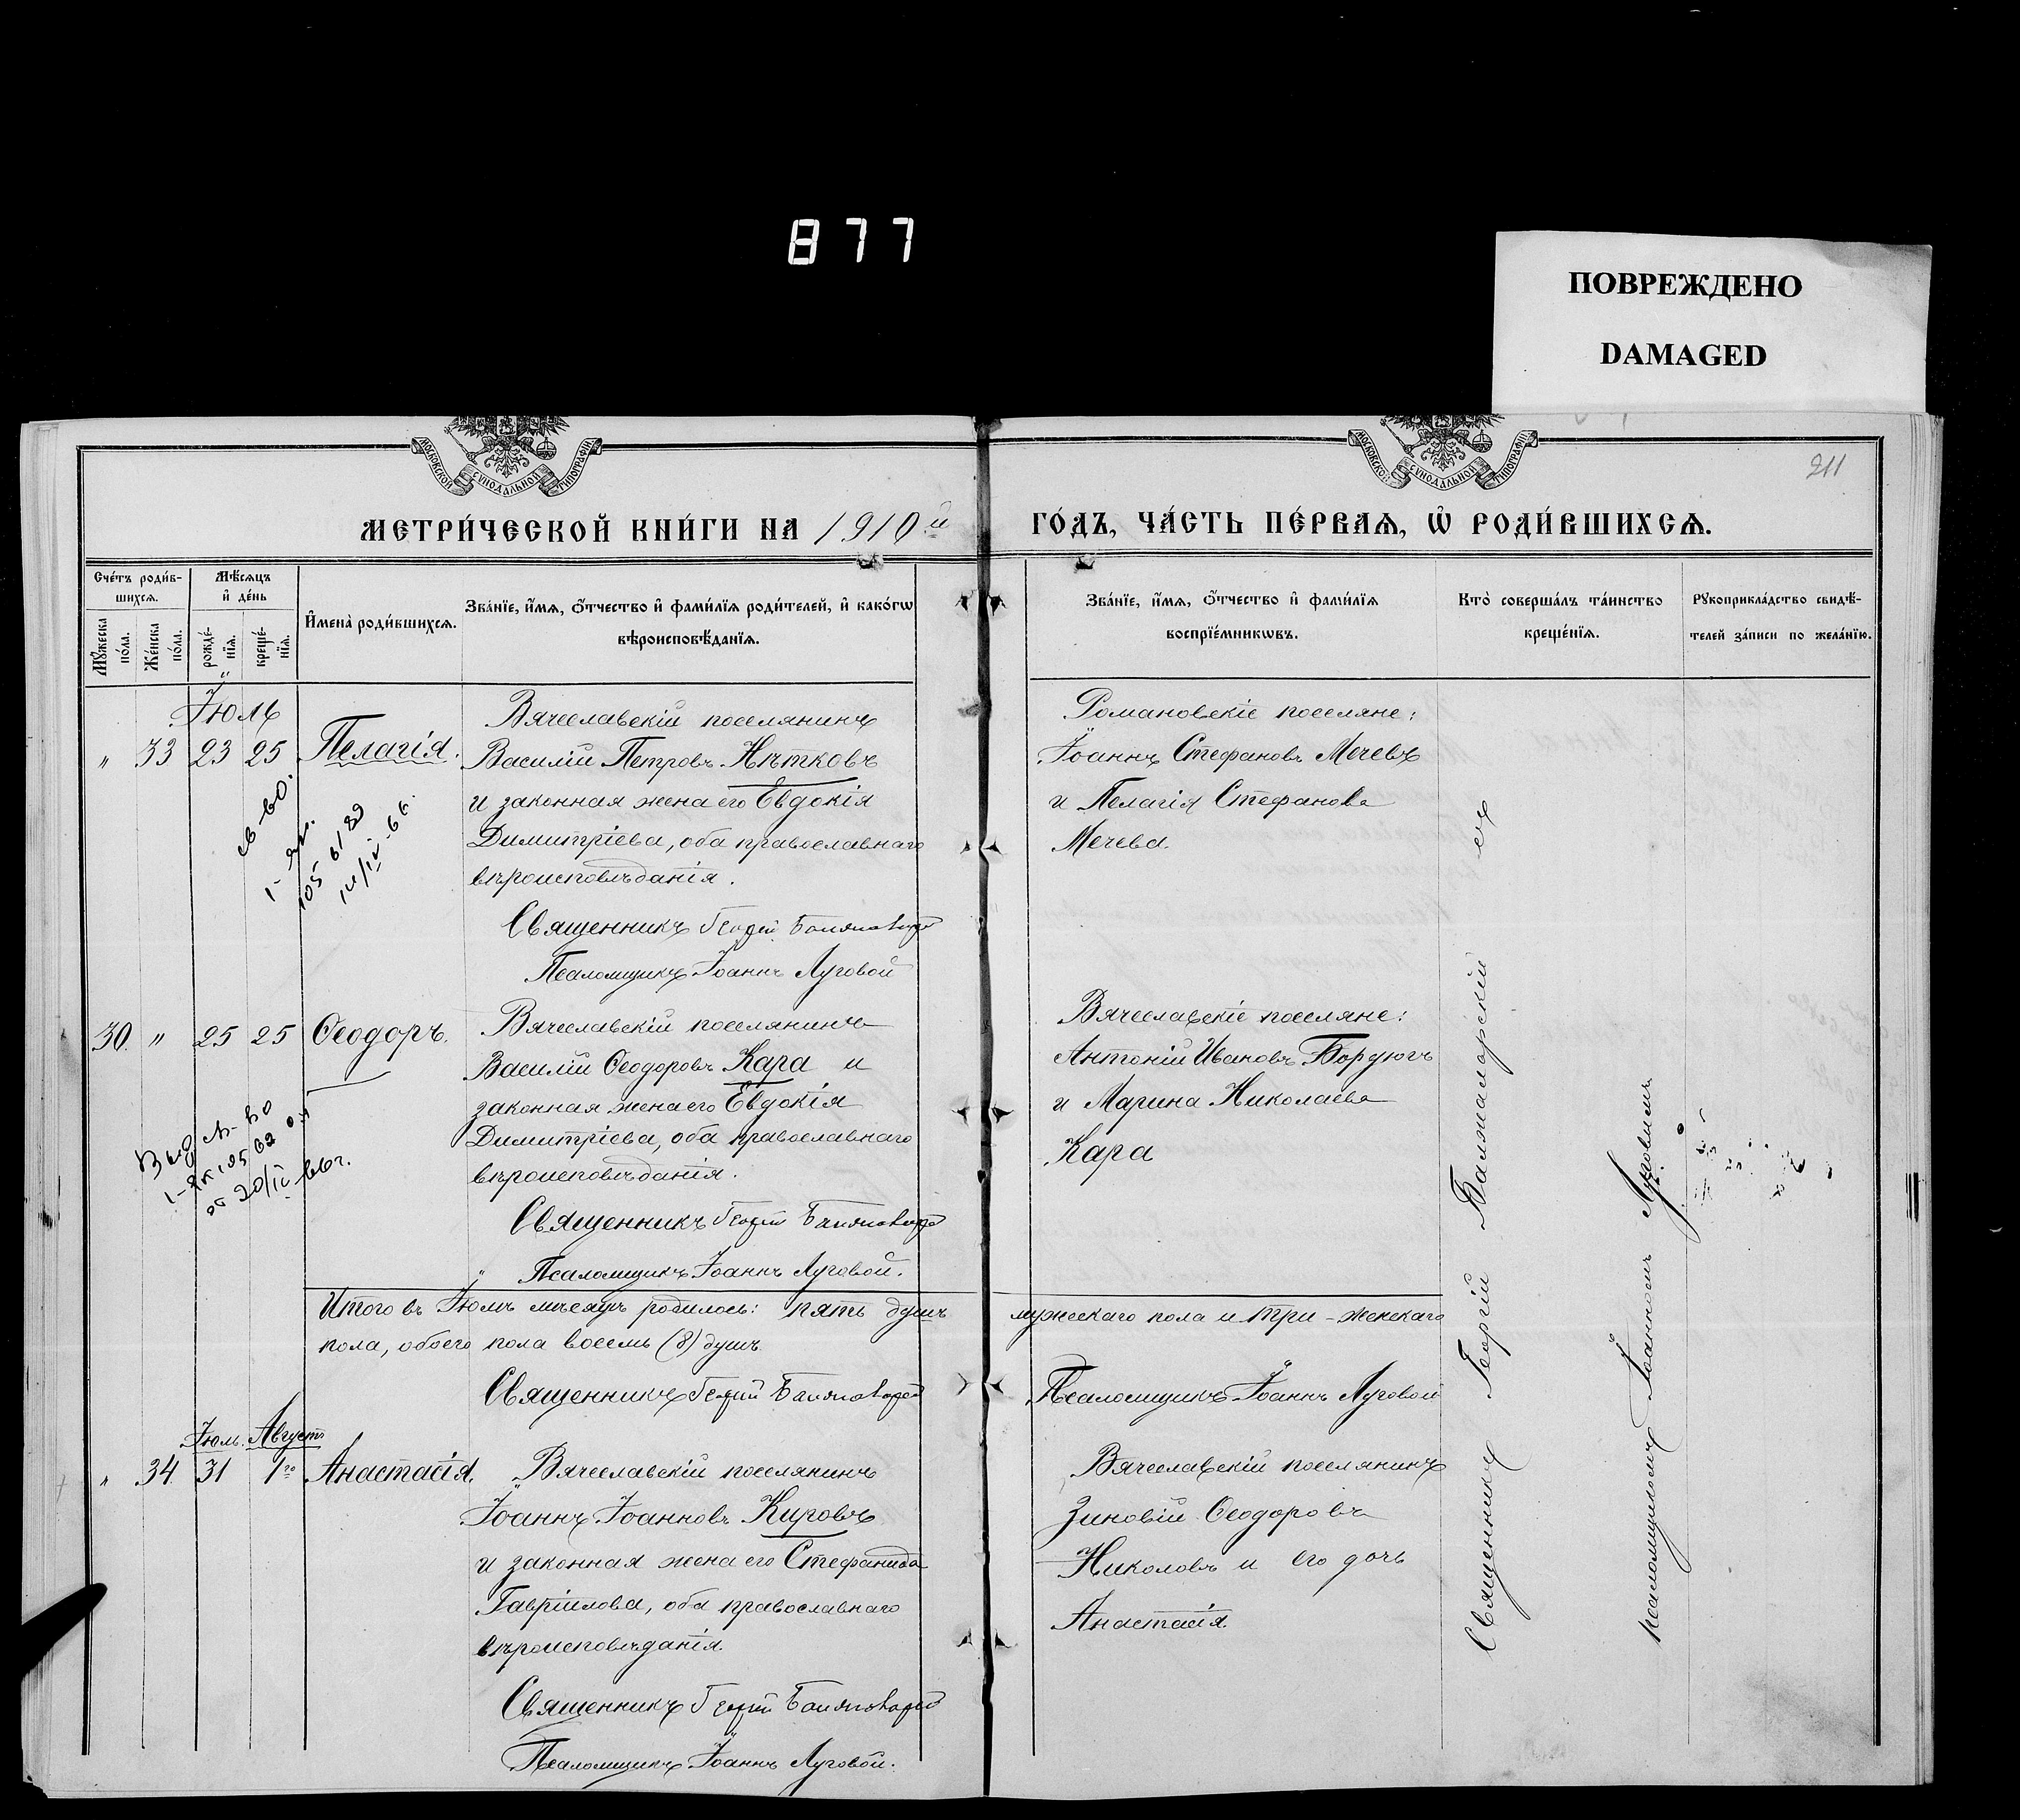 877
ПОВРЕЖДЕНО
DAMAGED
МОСКОВСКОЙ СѴНОДАЛЬНОЙ ТИПОГРАФІИ
МОСКОВСКОЙ СѴНОДАЛЬНОЙ ТИПОГРАФІИ
211
МЕТРИ́ЧЕСКОЙ КНИ́ГИ НА 1910й
ГО́ДЪ, ЧА́СТЬ ПЕ́РВАѦ, Ѽ РОДИ́ВШИХСѦ.
Сче́тъ роди́в-
шихсѧ.
Мꙋ́жеска по́ла.
Же́нска по́ла.
Мѣ́сѧцъ
и҆ де́нь
рожде́-
нїѧ.
креще́-
нїѧ.
И҆мена̀ роди́вшихсѧ.
Зва́нїе, и҆́мѧ, ѻ҆́тчество и҆ фами́лїѧ роди́телей, и҆ како́гѡ
вѣроисповѣ́данїѧ.
Зва́нїе, и҆́мѧ, ѻ҆́тчество и҆ фами́лїѧ
воспрїе́мникѡвъ.
Кто̀ соверша́лъ та́инство
креще́нїѧ.
Рꙋкоприкла́дство свидѣ́-
телей за́писи по жела́нїю.
Іюль
" 33 23 25 Пелагія.
Вячеславскій поселянинъ
Василій Петровъ Нѣтковъ
и законная жена его Евдокія
Димитріева, оба православнаго
вѣроисповѣданія.
Священникъ Георгій
Псаломщикъ Іоаннъ Луговой
Романовскіе поселяне:
Іоаннъ Стефановъ Мечевъ
и Пелагія Стефанова
Мечева.
30. " 25 25 Ѳеодоръ.
Вячеславскій поселянинъ
Василій Ѳеодоровъ Кара и
законная жена его Евдокія
Димитріева, оба православнаго
вѣроисповѣданія.
Священникъ Георгій
Псаломщикъ Іоаннъ Луговой.
Вячеславскіе поселяне:
Антоній Ивановъ Бордюгъ
и Марина Николаева
Кара
Итого въ Іюлѣ мѣсяцѣ родилось: пять душъ мужескаго пола и три - женскаго
пола, обоего пола восемь (8) душъ.
Священникъ Георгій
Псаломщикъ Іоаннъ Луговой
Іюль. Августъ
" 34. 31 1го Анастасія.
Вячеславскій поселянинъ
Іоаннъ Іоанновъ Кировъ
и законная жена его Стефанида
Гавріилова, оба православнаго
вѣроисповѣданія.
Священникъ Георгій
Псаломщикъ Іоаннъ Луговой.
Вячеславскій поселянинъ
Зиновій Ѳеодоровъ
Николовъ и его дочь
Анастасія.
Священникъ Георгій
псаломщикомъ Іоанномъ Луговымъ